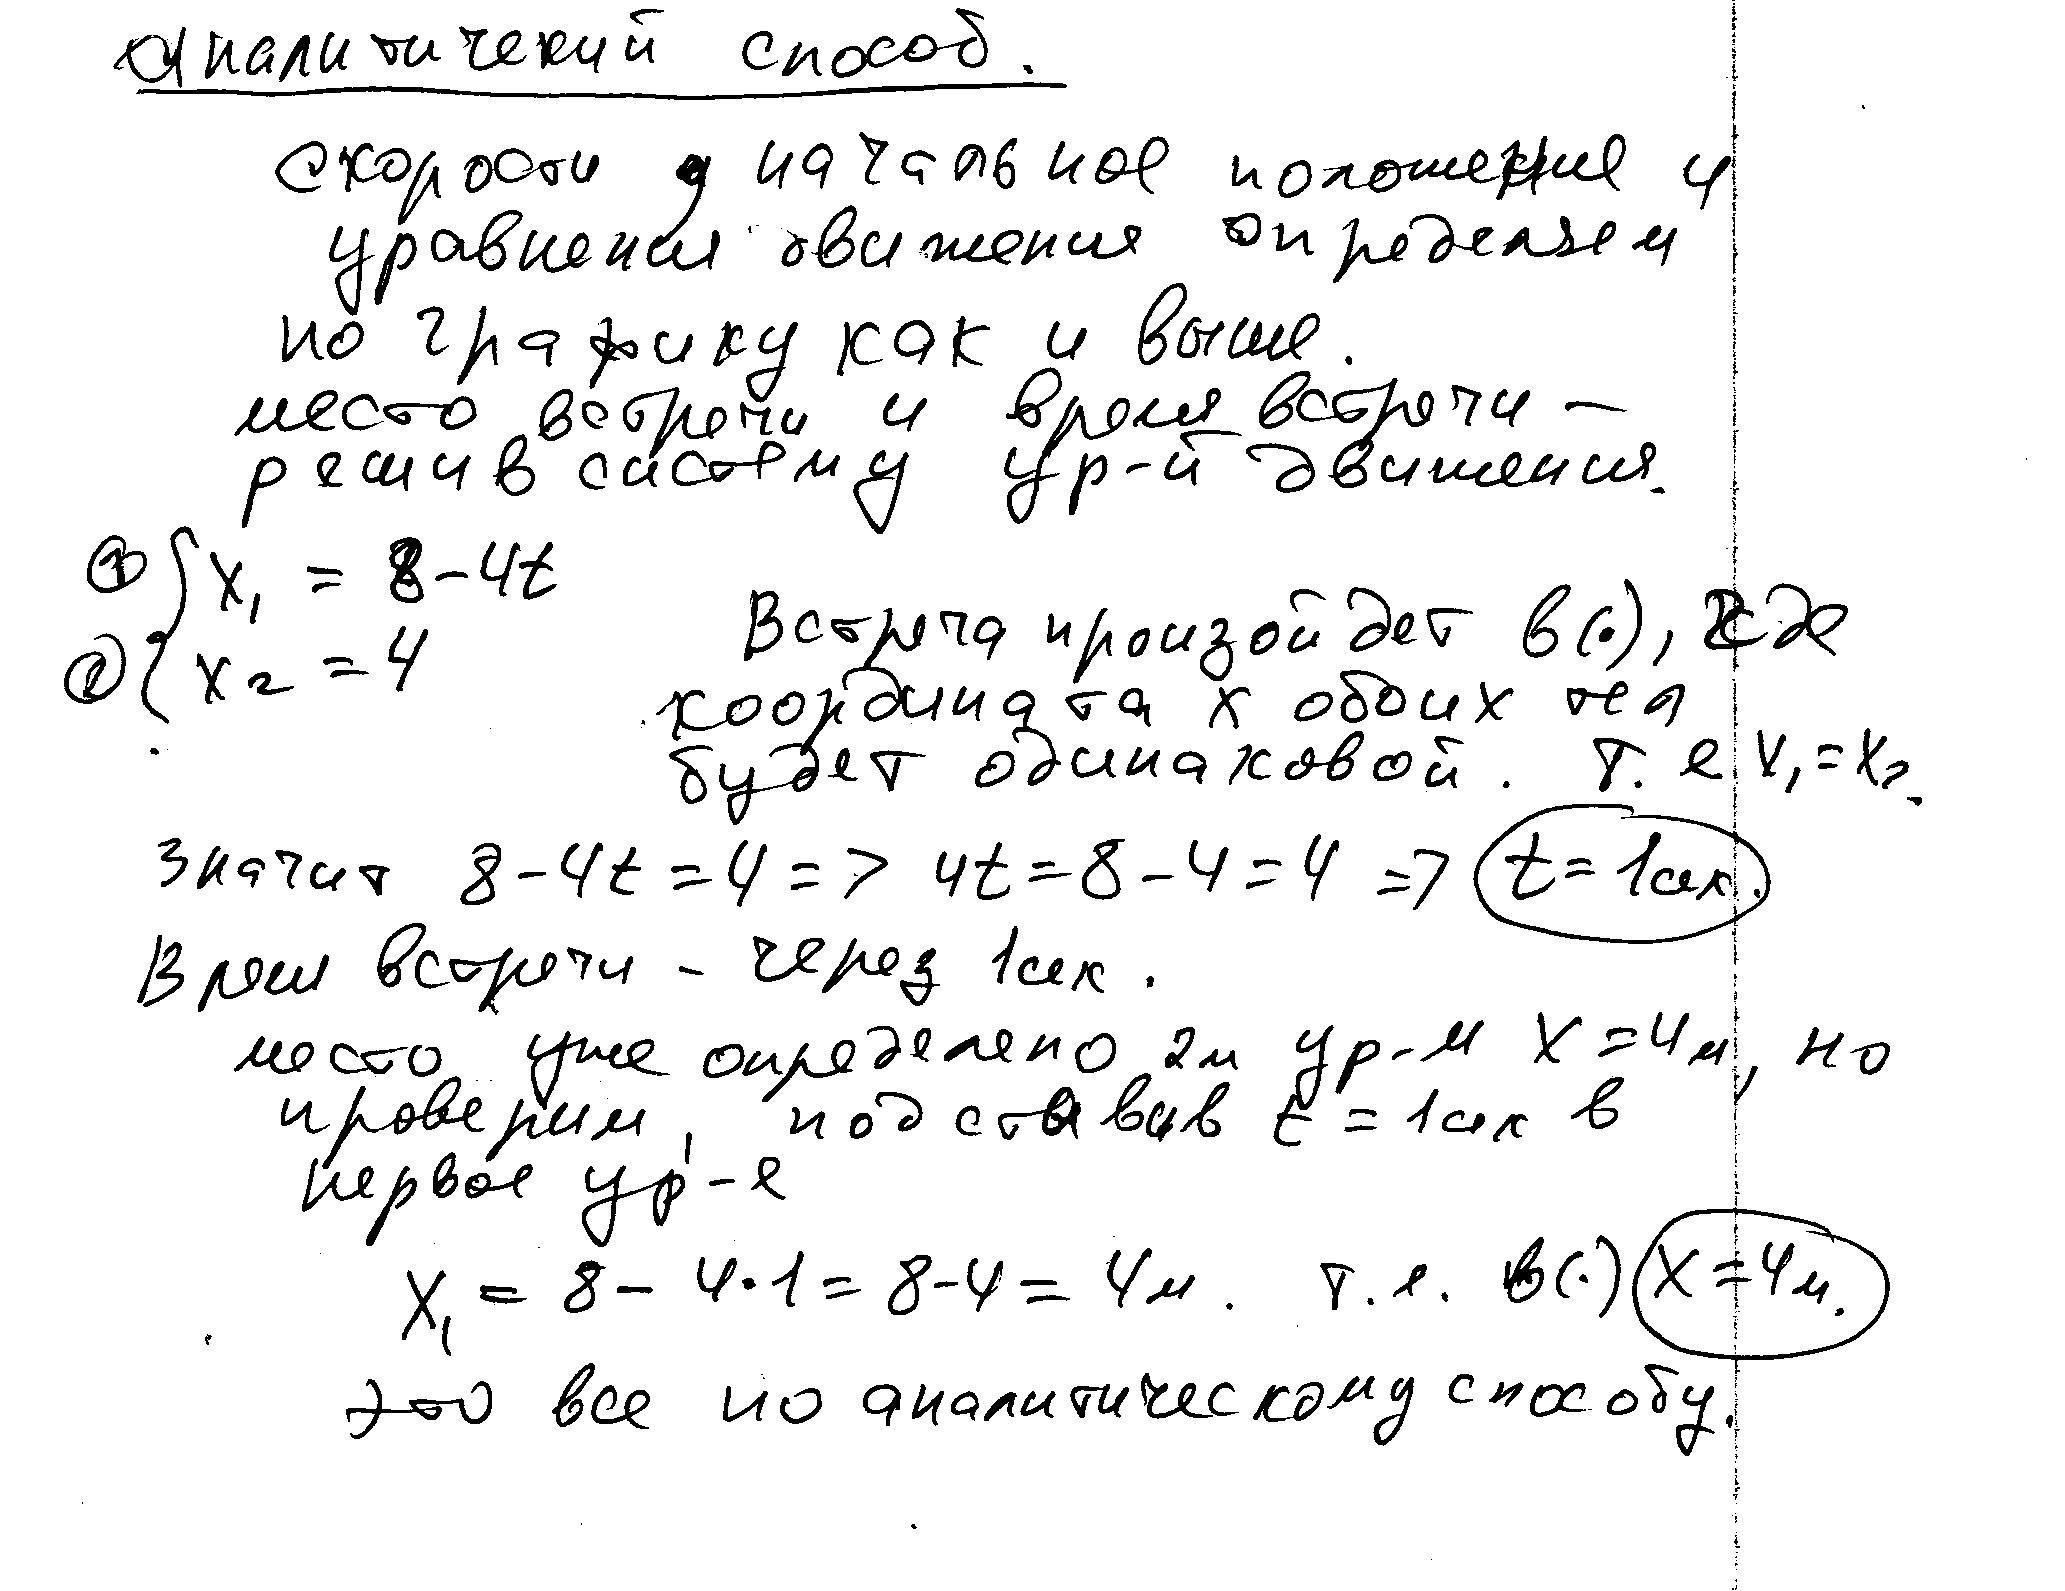 Аналитичекий способ.
скорости, начальное положение и
уравнения движения определяем
по графику как и выше.
место встречи и время встречи –
решив систему ур-й движения.
① { x₁ = 8 – 4t
② { x₂ = 4
Встреча произойдет в (·), где
координата x обоих тел
будет одинаковой. т. е x₁ = x₂.
Значит 8 – 4t = 4 => 4t = 8 – 4 = 4 => t = 1сек.
Время встречи – через 1сек.
место уже определено 2м ур-м X = 4м, но
проверим, подставив t = 1сек в
первое ур-е
X₁ = 8 – 4·1 = 8-4 = 4м. т.е. в (·) X = 4м.
это все по аналитическому способу.